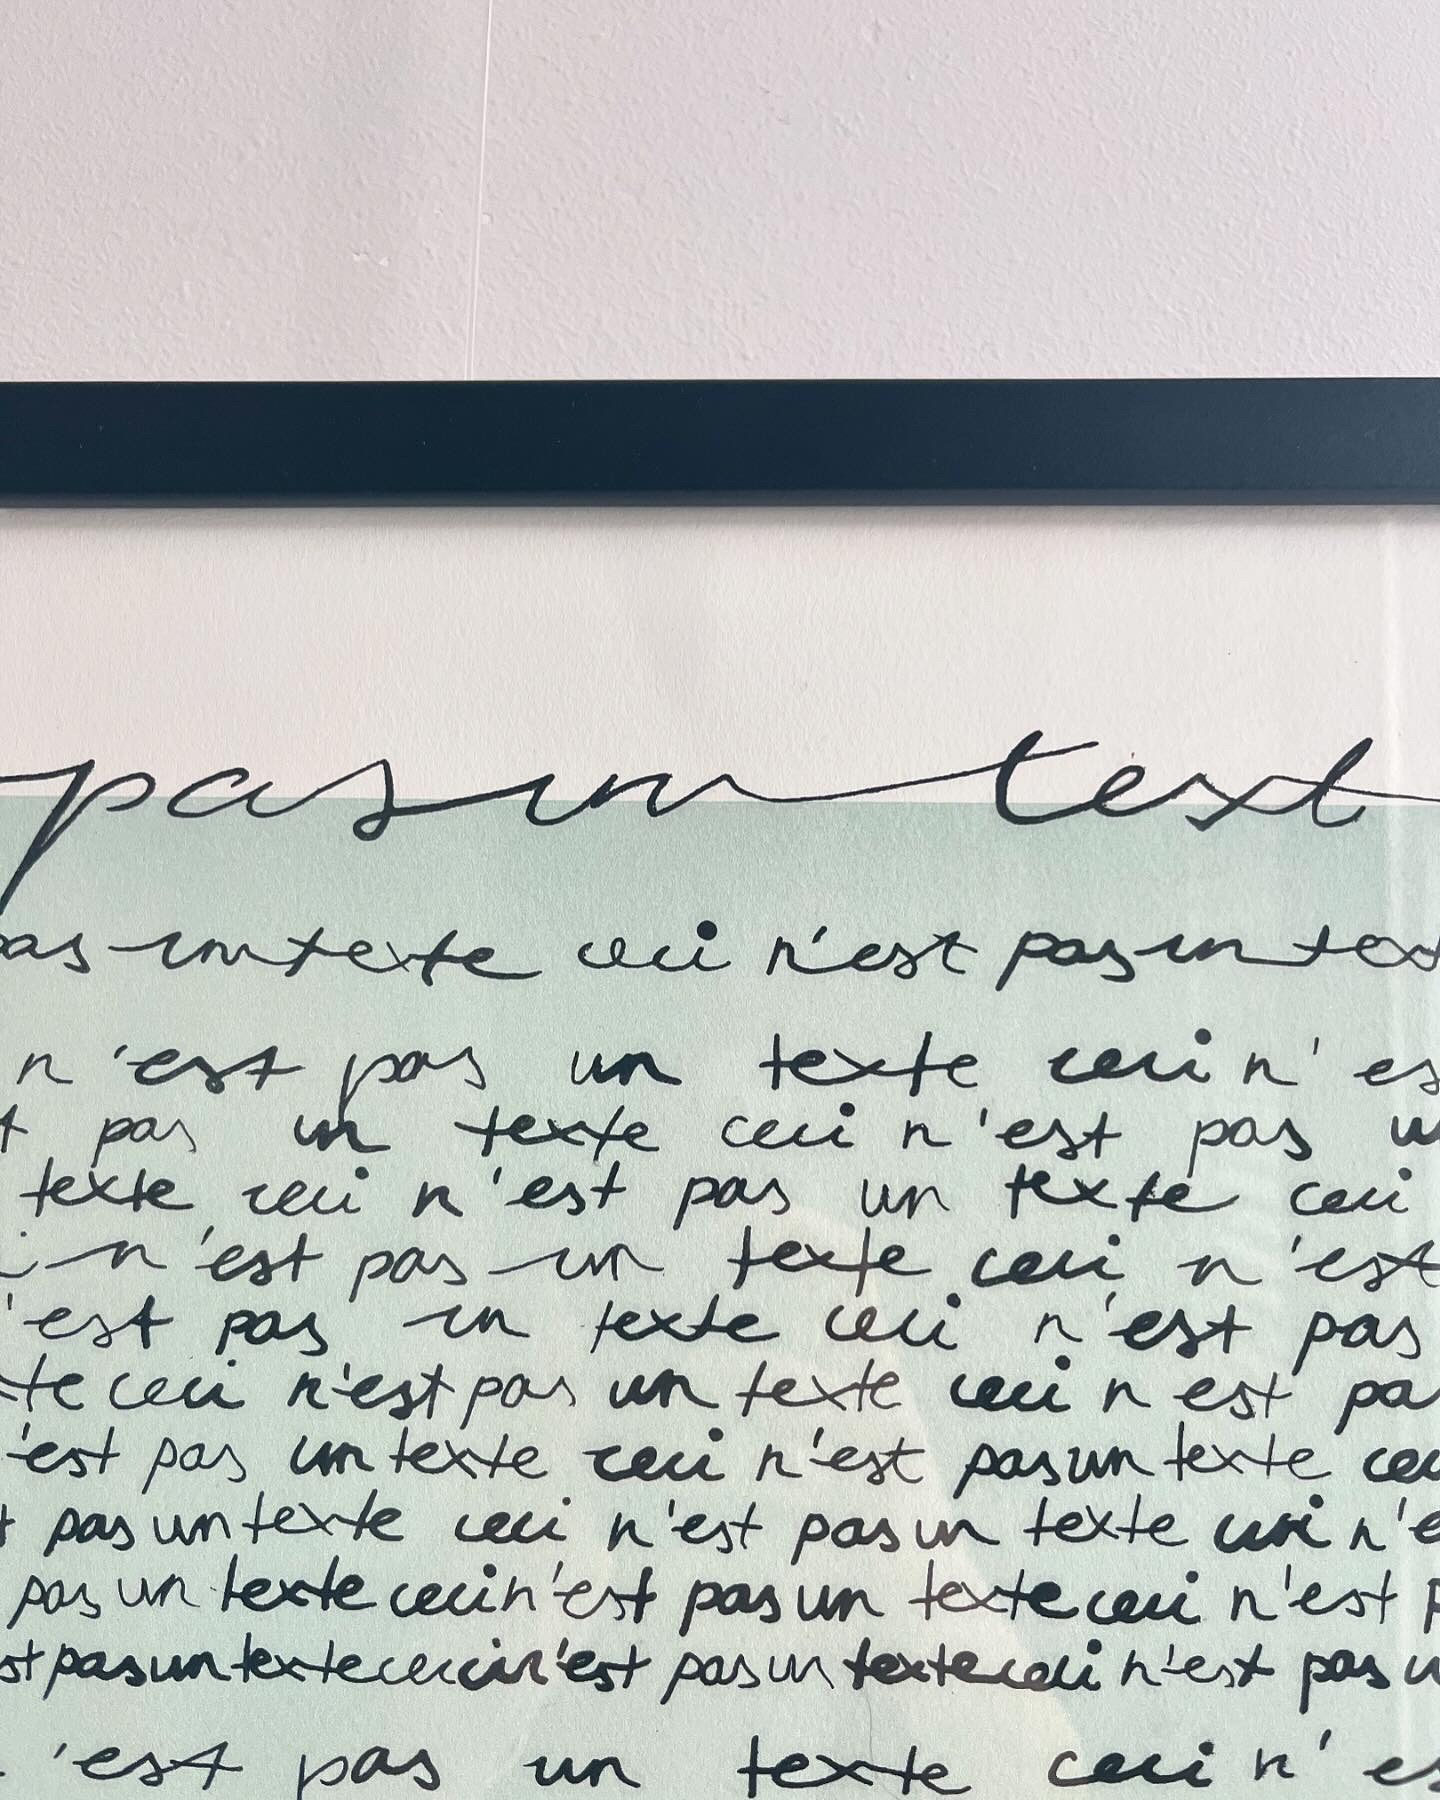 pas un text
pas un texte ceci n'est pas un text
n'est pas un texte ceci n'es
t pas un texte ceci n'est pas u
texte ceci n'est pas un texte ceci
i n'est pas un texte ceci n'est
'est pas un texte ceci n'est pas
te ceci n'est pas un texte ceci n est pa
'est pas un texte ceci n'est pas un texte cec
t pas un texte ceci n'est pas un texte ceci n'e
pas un texte ceci n'est pas un texte ceci n'est p
st pas un texte ceci n'est pas un texte ceci n'est pas u
'est pas un texte ceci n'es